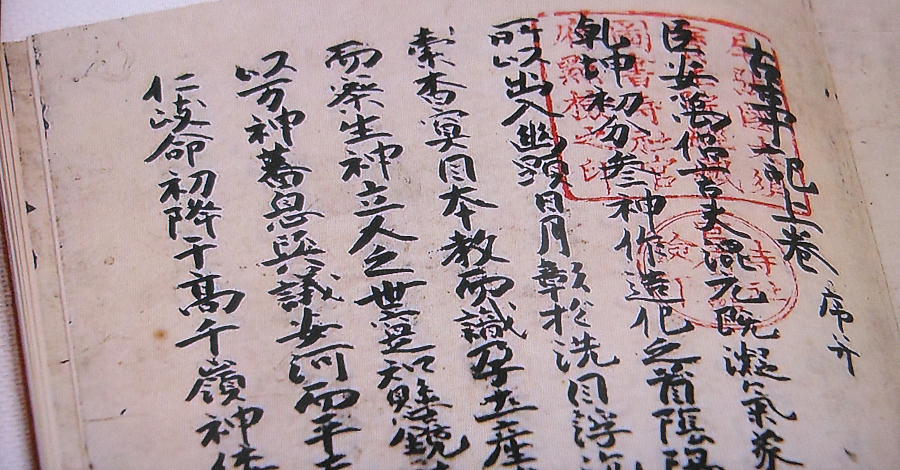 古事記上卷 序并
臣安萬侶言夫混元既凝氣象
乾坤初分參神作造化之首陰陽
所以出入幽顯日月彰於洗目浮海
素杳冥因本教而識孕土産
而察生神立人之世寔知懸鏡
以万神蕃息與議安河而平天
仁岐命初降于高千嶺神倭
尾張國大須
圖書寺社官
府點檢之印